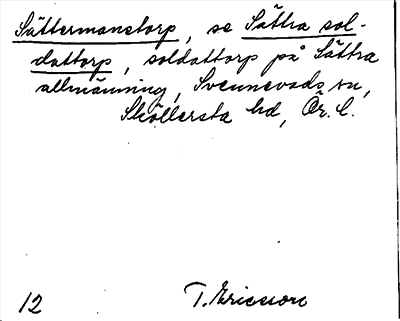 Sättermanstorp, se Sättra sol-
dattorp, soldattorp på Sättra
allmänning, Svennevads sn,
Sköllersta hd, Ör. l.
12 T. Ericsson